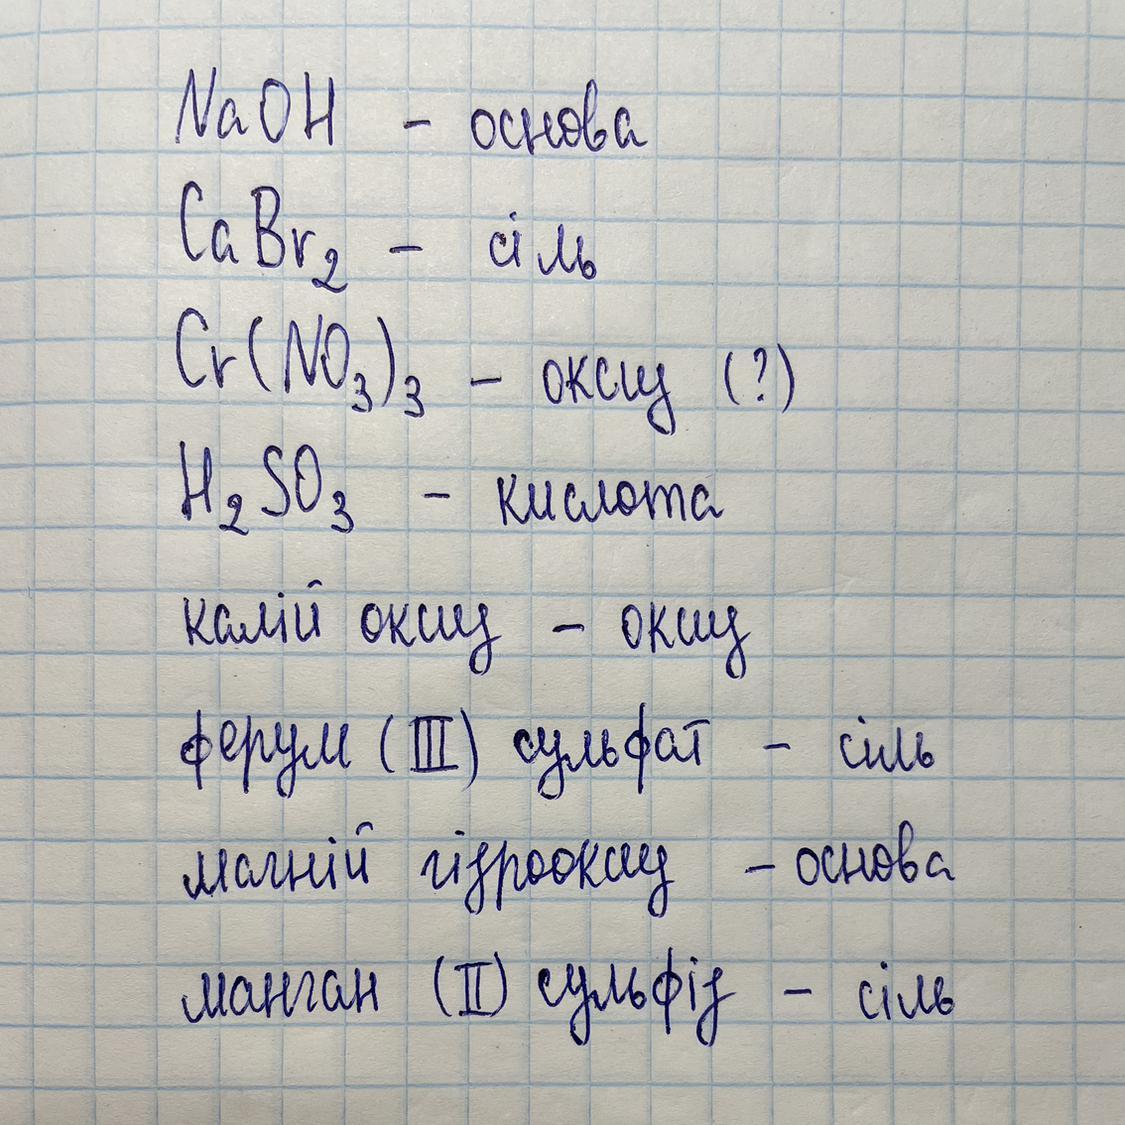 NaOH - основа
CaBr₂ - сіль
Cr(NO₃)₃ - оксид (?)
H₂SO₃ - кислота
калій оксид - оксид
ферум (III) сульфат - сіль
магній гідрооксид - основа
манган (II) сульфід - сіль